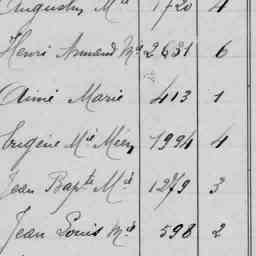 Augustin Mie 1720 4
Henri Armand Me 2681 6
Aimé Marie 413 1
Eugène Mie 1994 4
Jean Bapte Mie 1279 3
Jean Louis Mie 598 2